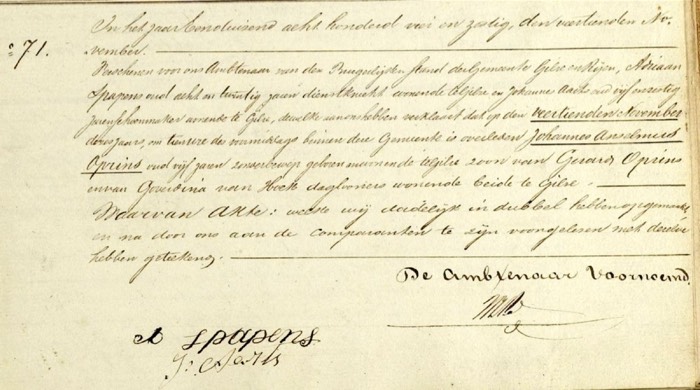 In het jaar een duizend acht honderd vier en zestig, den veertienden No-
N° 71.
vember.
Verschenen voor ons Ambtenaar van den Burgerlijken Stand der Gemeente Gilze en Rijen, Adriaan
Spapens oud acht en twintig jaren dienstknecht wonende te Gilze en Johannes Aarts oud vijf en zestig
jaren schoenmaker wonende te Gilze, dewelke aan ons hebben verklaard dat op den veertienden November
dezes jaars, om twee ure des voormiddags binnen deze Gemeente is overleden Johannes Anselmus
Oprins oud vijf jaren zonder beroep geboren en wonende te Gilze zoon van Gerard Oprins
en van Goverdina van Hoek daglooners wonende beide te Gilze.
Waarvan Akte: welke wij dadelijk in dubbel hebben opgemaakt
en na door ons aan de comparanten te zijn voorgelezen met dezelve
hebben geteekend.
De Ambtenaar Voornoemd.
A Spapens
J: Aarts